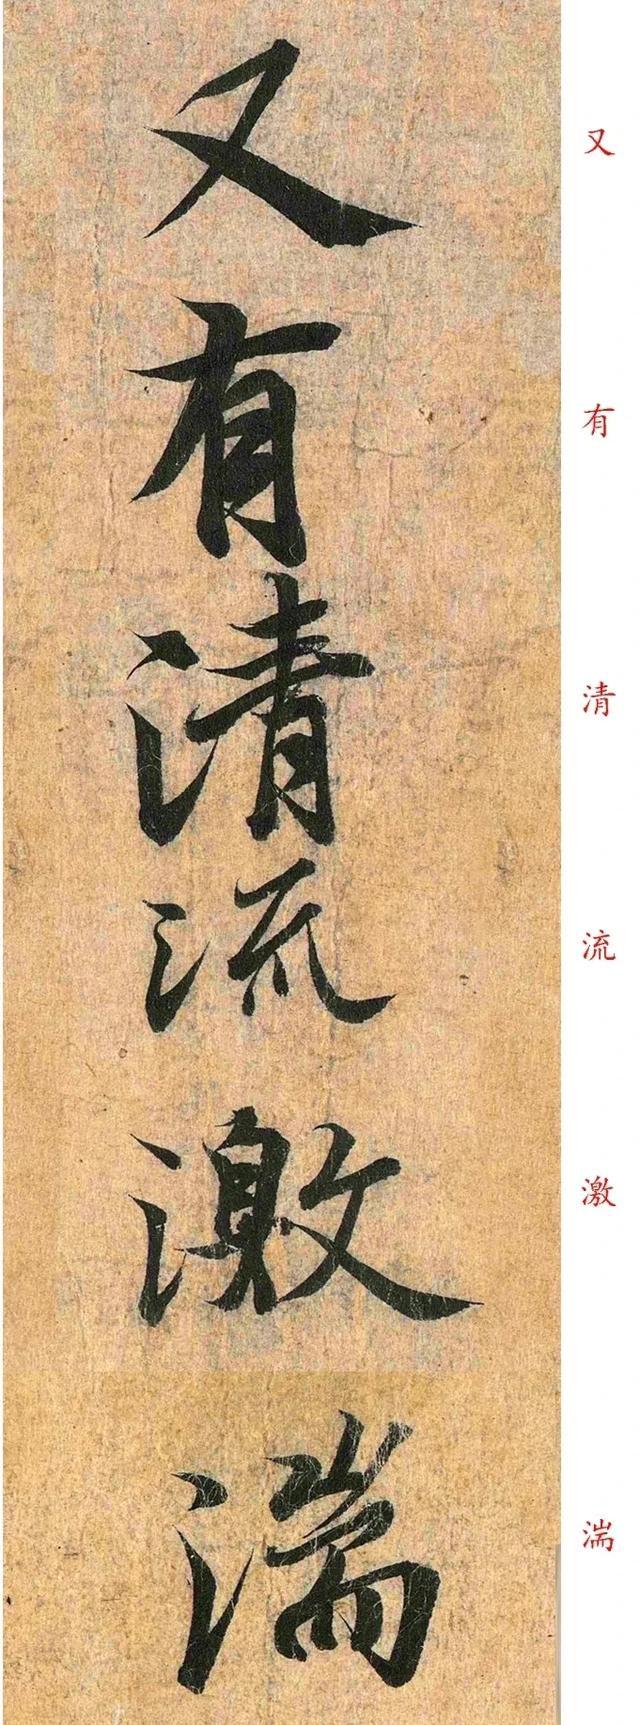 又有清流激湍
又
有
清
流
激
湍